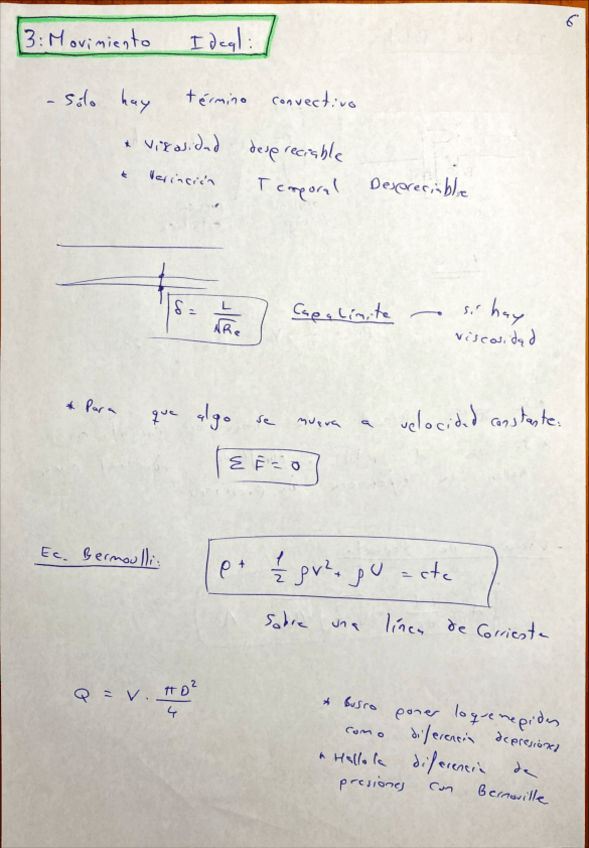 6
3: Movimiento Ideal:
- Sólo hay término convectivo
* Viscosidad despreciable
* Variación Temporal Despreciable
δ = L / √Re
Capa Límite → sí hay
viscosidad
* Para que algo se mueva a velocidad constante:
Σ F̄ = 0
Ec. Bernoulli:
p + 1/2 ρv² + ρU = cte
Sobre una línea de Corriente
Q = V · πD²/4
* Busco poner lo que me piden
como diferencia de presiones
* Hallo la diferencia de
presiones con Bernoville